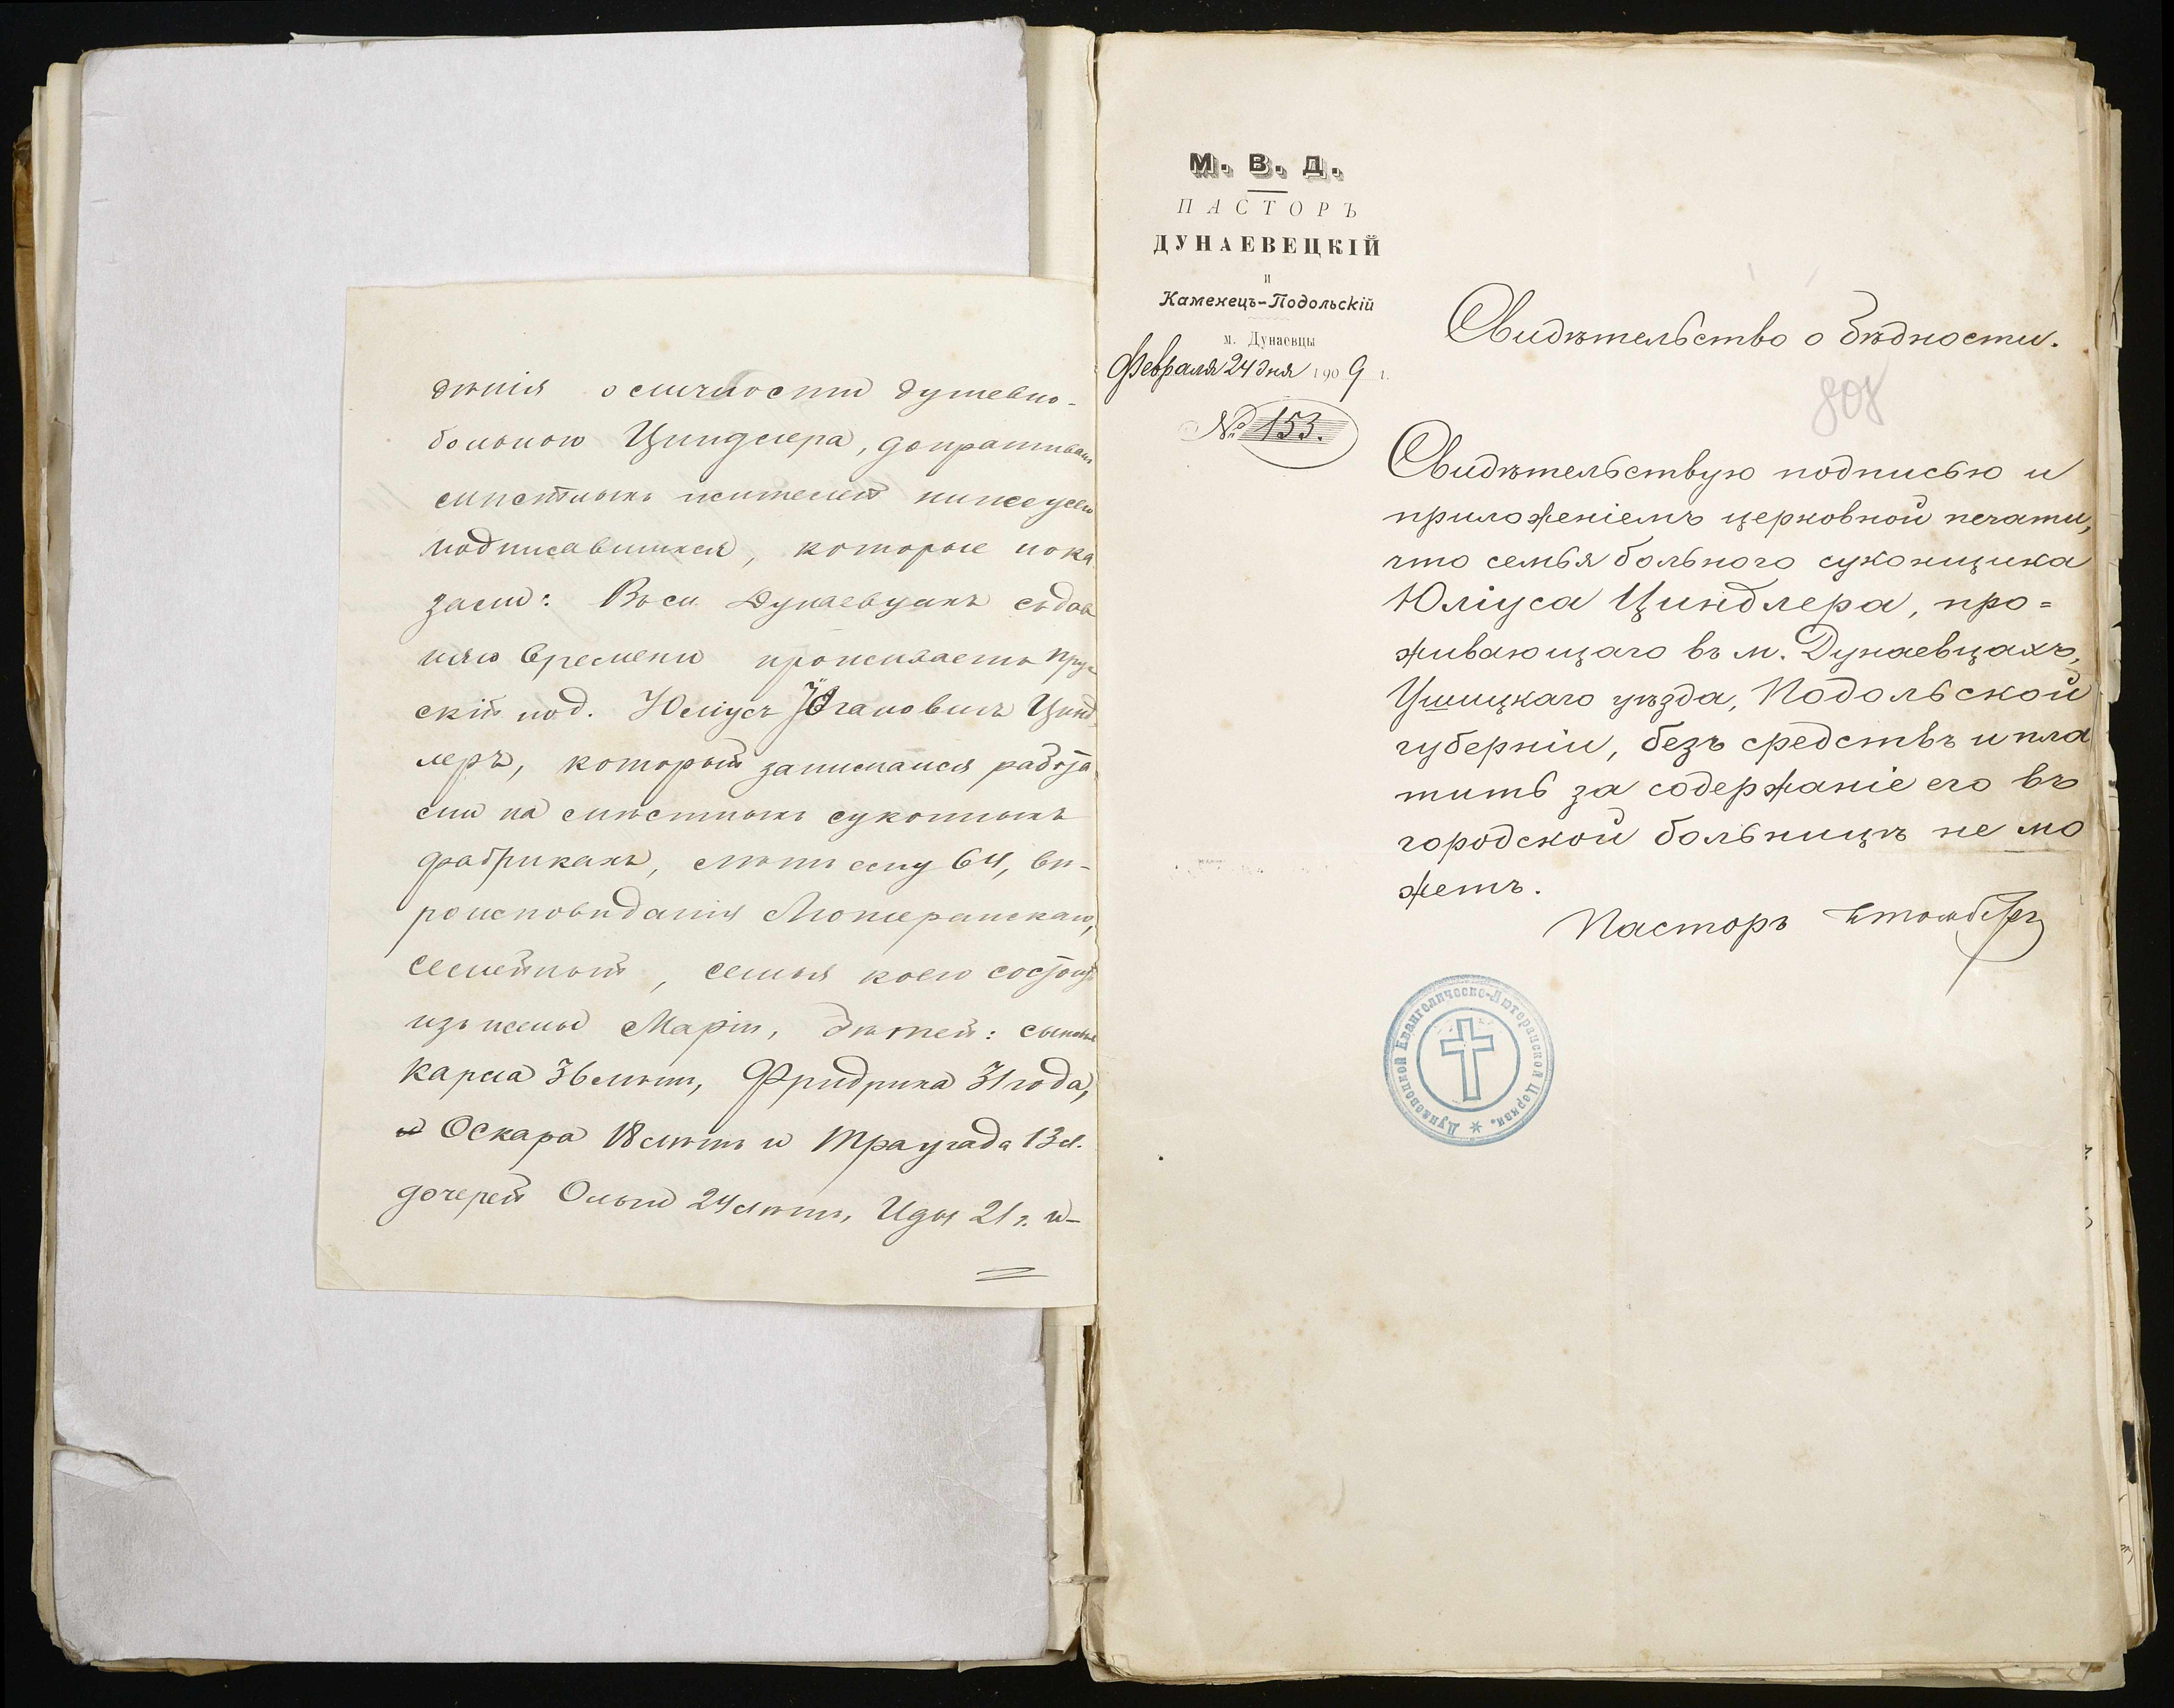 дѣнія о личности душевно-
больного Циндлера, допрашивалъ
мѣстныхъ жителей ниже сего
подписавшихся, которые пока
зали: Въ м. Дунаевцахъ съ дав
няго времени проживаетъ Прус
скій под. Юліусъ Югановичъ Цинд
леръ, который занимался работа
ми на мѣстныхъ суконныхъ
фабрикахъ, лѣтъ ему 64, вѣ-
роисповѣданія Лютеранскаго,
семейный, семья коего состоитъ
изъ жены Маріи, дѣтей: сыновья
Карла 36 лѣтъ, Фридриха 31 года,
и Оскара 18 лѣтъ и Траугада 13 л.
дочерей Ольги 24 лѣтъ, Иды 21 г. и-
М. В. Д.
ПАСТОРЪ
ДУНАЕВЕЦКІЙ
и
Каменецъ-Подольскій
м. Дунаевцы
Февраля 24 дня 1909 г.
№ 153.
Свидѣтельство о бѣдности.
808
Свидѣтельствую подписью и
приложеніемъ церковной печати,
что семья больного суконщика
Юліуса Циндлера, про=
живающаго въ м. Дунаевцахъ,
Ушицкаго уѣзда, Подольской
губерніи, безъ средствъ и пла
тить за содержаніе его въ
городской больницѣ не мо
жетъ.
Пасторъ
Дунаевецкой Евангелическо-Лютеранской Церкви.